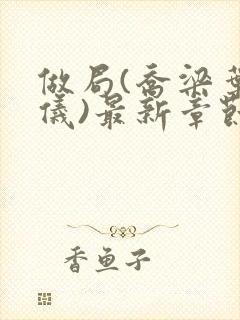 做局(乔梁叶
仪)最新章节
香鱼子